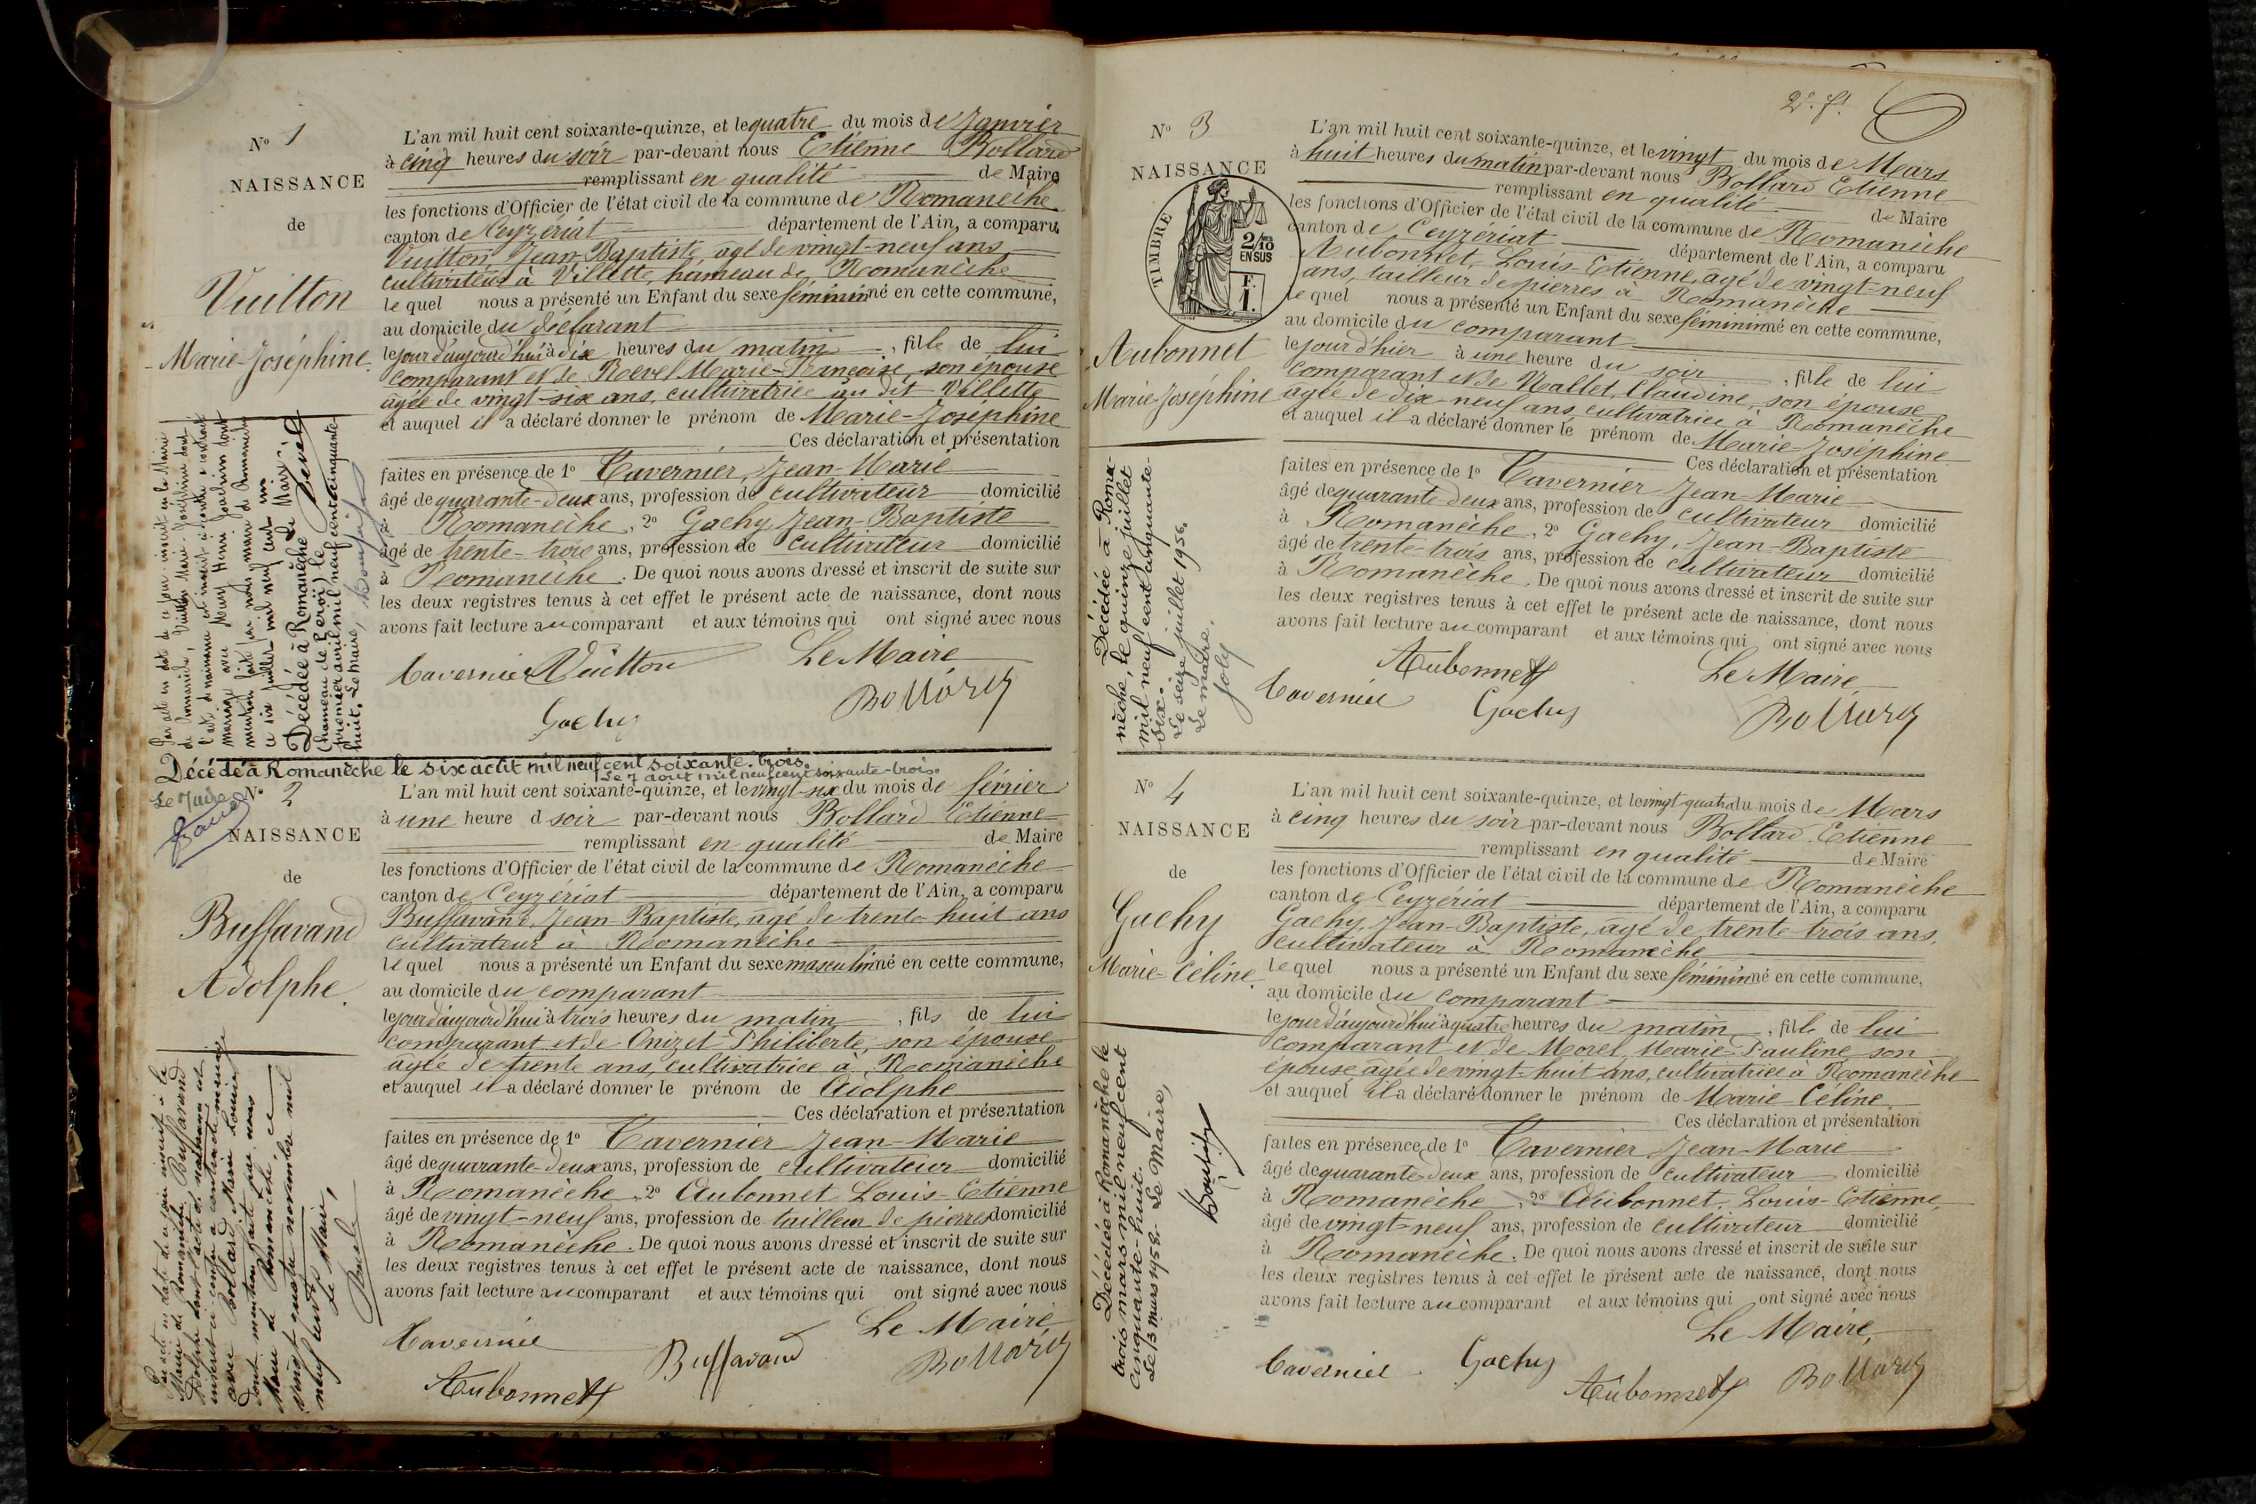 Nº 1
NAISSANCE
de
Vuitton
Marie-Joséphine.
L'an mil huit cent soixante-quinze, et le quatre du mois de Janvier
à cinq heures du soir par-devant nous Etienne Bollard
remplissant en qualité de Maire
les fonctions d'Officier de l'état civil de la commune de Romanèche
canton de Ceyzériat département de l'Ain, a comparu
Vuitton Jean Baptiste, agé de vingt-neuf ans
cultivateur à Villette, hameau de Romanèche
lequel nous a présenté un Enfant du sexe féminin né en cette commune,
au domicile du déclarant
le jour d'aujourd'hui à dix heures du matin, fille de lui
comparant et de Revel Marie-Françoise, son épouse
agée de vingt-six ans, cultivatrice au dit Villette
et auquel il a déclaré donner le prénom de Marie-Joséphine
Ces déclaration et présentation
faites en présence de 1º Tavernier, Jean-Marie
âgé de quarante-deux ans, profession de cultivateur domicilié
à Romanèche, 2º Gachy Jean-Baptiste
âgé de trente-trois ans, profession de cultivateur domicilié
à Romanèche. De quoi nous avons dressé et inscrit de suite sur
les deux registres tenus à cet effet le présent acte de naissance, dont nous
avons fait lecture au comparant et aux témoins qui ont signé avec nous
Tavernier Vuitton Le Maire
Gachy Bollard
Par acte en date de ce jour inscrit en la Mairie
de Romanèche, Vuitton Marie-Joséphine dont
l'acte de naissance est inscrit ci-contre a contracté
mariage avec Henri Joachim dont
mention faite par nous, maire de Romanèche
ce six juillet mil neuf cent un
Le Maire
Revel
Décédée à Romanèche
(hameau de ) le
premier avril mil neuf cent cinquante-
huit. Le maire,
Décédé à Romanèche le six août mil neuf cent soixante-trois.
Le 7 août mil neuf cent soixante-trois.
Le Maire
Nº 2
NAISSANCE
de
Buffavand
Adolphe.
L'an mil huit cent soixante-quinze, et le vingt-six du mois de février
à une heure d soir par-devant nous Bollard Etienne
remplissant en qualité de Maire
les fonctions d'Officier de l'état civil de la commune de Romanèche
canton de Ceyzériat département de l'Ain, a comparu
Buffavand, Jean-Baptiste, agé de trente huit ans
cultivateur à Romanèche
lequel nous a présenté un Enfant du sexe masculin né en cette commune,
au domicile du comparant
le jour d'aujourd'hui à trois heures du matin, fils de lui
comparant et de Onizet Philiberte, son épouse
agée de trente ans, cultivatrice à Romanèche
et auquel il a déclaré donner le prénom de Adolphe
Ces déclaration et présentation
faites en présence de 1º Tavernier Jean-Marie
âgé de quarante-deux ans, profession de cultivateur domicilié
à Romanèche, 2º Aubonnet Louis-Etienne
âgé de vingt-neuf ans, profession de tailleur de pierres domicilié
à Romanèche. De quoi nous avons dressé et inscrit de suite sur
les deux registres tenus à cet effet le présent acte de naissance, dont nous
avons fait lecture au comparant et aux témoins qui ont signé avec nous
Le Maire
Tavernier Buffavand Bollard
Aubonnet
Par acte en date de ce jour inscrit à la
Mairie de Romanèche, Buffavand
Adolphe dont l'acte de naissance est
inscrit ci-contre a contracté mariage
avec Bollard Marie Louise
dont mention faite par nous
Maire de Romanèche, ce
vingt-quatre novembre mil
neuf cent
Le Maire,
2e. ft.
Nº 3
NAISSANCE
TIMBRE
2/10 EN SUS
F. 1.
Aubonnet
Marie-Joséphine
L'an mil huit cent soixante-quinze, et le vingt du mois de Mars
à huit heures du matin par-devant nous Bollard Etienne
remplissant en qualité de Maire
les fonctions d'Officier de l'état civil de la commune de Romanèche
canton de Ceyzériat département de l'Ain, a comparu
Aubonnet, Louis-Etienne, agé de vingt-neuf
ans, tailleur de pierres à Romanèche
lequel nous a présenté un Enfant du sexe féminin né en cette commune,
au domicile du comparant
le jour d'hier à une heure du soir, fille de lui
comparant et de Nallet, Claudine, son épouse
agée de dix-neuf ans, cultivatrice à Romanèche
et auquel il a déclaré donner le prénom de Marie-Joséphine
Ces déclaration et présentation
faites en présence de 1º Tavernier Jean-Marie
âgé de quarante deux ans, profession de cultivateur domicilié
à Romanèche, 2º Gachy, Jean-Baptiste
âgé de trente-trois ans, profession de cultivateur domicilié
à Romanèche. De quoi nous avons dressé et inscrit de suite sur
les deux registres tenus à cet effet le présent acte de naissance, dont nous
avons fait lecture au comparant et aux témoins qui ont signé avec nous
Aubonnet Le Maire,
Tavernier Gachy Bollard
Décédée à Roma-
nèche, le quinze juillet
mil neuf cent cinquante-
six.
Le seize juillet 1956.
Le maire,
Joly
Nº 4
NAISSANCE
de
Gachy
Marie-Céline.
L'an mil huit cent soixante-quinze, et le vingt-quatre du mois de Mars
à cinq heures du soir par-devant nous Bollard Etienne
remplissant en qualité de Maire
les fonctions d'Officier de l'état civil de la commune de Romanèche
canton de Ceyzériat département de l'Ain, a comparu
Gachy, Jean-Baptiste, agé de trente-trois ans,
cultivateur à Romanèche
lequel nous a présenté un Enfant du sexe féminin né en cette commune,
au domicile du comparant
le jour d'aujourd'hui à quatre heures du matin, fille de lui
comparant et de Morel Marie-Pauline son
épouse agée de vingt-huit ans, cultivatrice à Romanèche
et auquel il a déclaré donner le prénom de Marie Céline.
Ces déclaration et présentation
faites en présence de 1º Tavernier Jean-Marie
âgé de quarante-deux ans, profession de cultivateur domicilié
à Romanèche, 2º Aubonnet, Louis-Etienne,
âgé de vingt-neuf ans, profession de cultivateur domicilié
à Romanèche. De quoi nous avons dressé et inscrit de suite sur
les deux registres tenus à cet effet le présent acte de naissance, dont nous
avons fait lecture au comparant et aux témoins qui ont signé avec nous
Le Maire,
Tavernier Gachy Aubonnet Bollard
Décédée à Romanèche le
trois mars mil neuf cent
cinquante-huit.
Le 3 mars 1958. Le Maire,